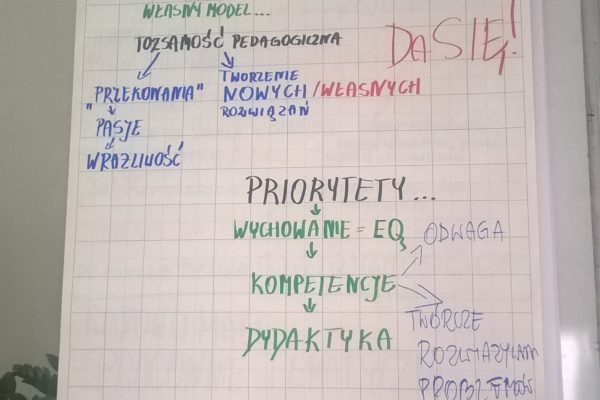 WŁASNY MODEL...
TOŻSAMOŚĆ PEDAGOGICZNA
DA SIĘ!
"PRZEKONANIA"
TWORZENIE
NOWYCH/WŁASNYCH
ROZWIĄZAŃ
PASJE
WRAŻLIWOŚĆ
PRIORYTETY...
WYCHOWANIE = EQ
ODWAGA
KOMPETENCJE
TWÓRCZE
DYDAKTYKA
ROZWIĄZYWAN
PROBLEMÓW